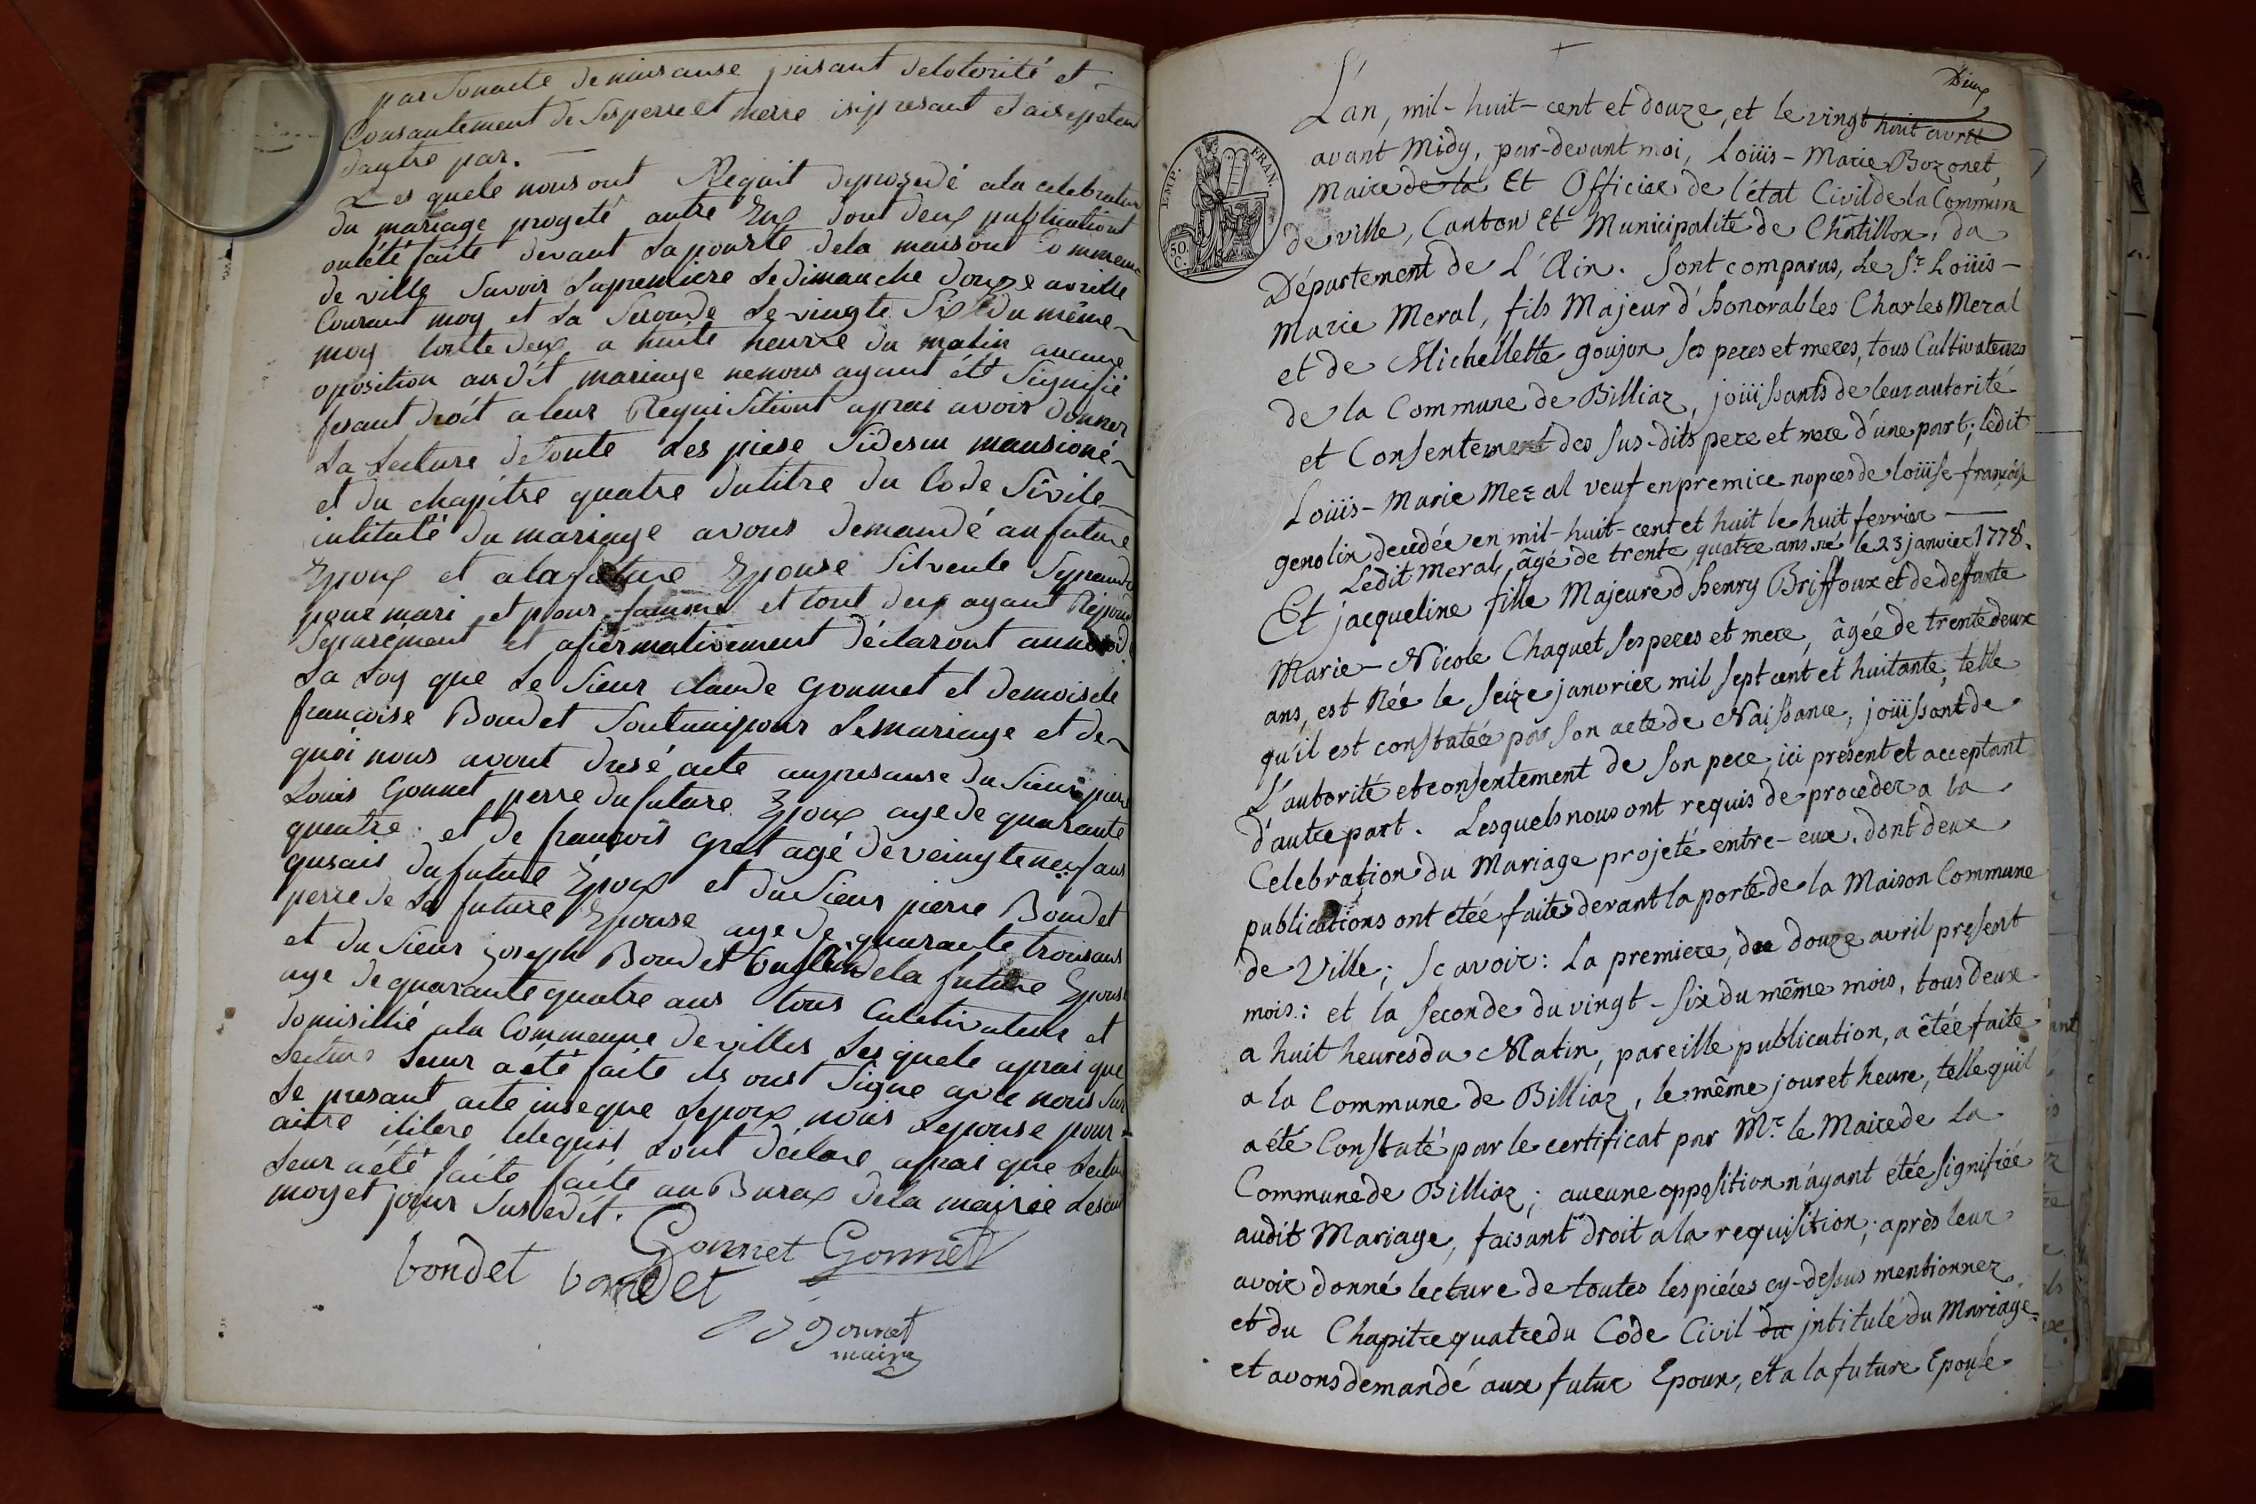 par Son acte de naisance juisant delotorité et
Consantement de Ses perre et merre isi presant et aisepetent
dautre par. —
Les quele nous ont Requit deprosedé ala celebration
du mariage progeté autre Eux dont deux publicationt
ont été faite devant la pourte dela maisont Commeune
de ville Savoir Lapremiere Ledimanche douze avrille
Courant moy et La Seconde Le vingte Six du même
moy toute deux a huite heurre du matin aucune
oposition audit mariage nenous ayant été Signifié
fesant droit a leur Requisitiont aprai avoir donner
La Lecture de toute Les piese Sidesu mansioné
et du chapitre quatre dutitre du Code Sivile
intitulé du mariage avons demandé au future
Epoux et a la future Epouse Silveule Syprandre
pour mari et pour famme et tout deux ayant Répondu
Séparément et afirmativement déclaront aunom de
La Loy que Le Sieur claude Gonnet et demoisele
françoise Boudet Sont unis pour Lemariage et de
quoi nous avont dresé acte aupresanse du Sieur
Louis Gonnet perre du future Epoux age de quarante
quatre et de françois Grat agé de veingteneuf ans
qusain du future Epoux et du Sieur pierre Boudet
perre de La future Epouse age de quarante troisans
et du Sieur joseph Boudet de la future Epouse
age de quarante quatre ans tous Cultivateur et
domisillié ala Commeune de villes Les quele aprai que
Lecture Leur a été faite ils ont Signe avec nous Sur
Le presant acte inseque Lepoux nous Lepouse pour
aitre ilitere lequel Lont déclare aprai que Lecture
Leur a été faite faite au Buraux dela mairie Lesdit
moy et jour Susdedit.
Gonnet Gonnet
bondet bondet
Gonnet
maire
Deux
L'an, mil-huit-cent et douze, et le vingt huit avril
avant Midy, par-devant moi, Loüis-Marie Bozonet,
Maire de la Et Officier de l'état Civil de la Commune
de ville, Canton Et Municipalité de Châtillon, du
Département de L'Ain. Sont comparus, Le Sr. Loüis-
Marie Meral, fils Majeur d'honorables Charles Meral
et de Michellette goujon ses peres et meres, tous Cultivateurs
de la Commune de Billiaz, joüissants de leur autorité
et Consentement des Sus-dits pere et mere d'une part; ledit
Loüis-Marie Meral veuf en premiere nopces de loüise-françoise
genolin decedée en mil-huit-cent et huit le huit fevrier —
Ledit Meral, âgé de trente quatre ans, né le 23 janvier 1778.
Et jacqueline fille Majeure d'henry Briffoux et de deffunte
Marie-Nicole Chaquet ses peres et mere, âgée de trente deux
ans, est Née le Seize janvrier mil sept cent et huitante, telle
qu'il est constatée par Son acte de Naissance, joüissant de
L'autorité et consentement de Son pere, ici present et acceptant
d'autre part. Lesquels nous ont requis de proceder a la
Celebration du Mariage projeté entre-eux, dont deux
publications ont étée faites devant la porte de la Maison Commune
de Ville; Sçavoir: La premiere, du douze avril present
mois: et la Seconde du vingt-Six du même mois, tous deux
a huit heures du Matin, pareille publication, a étée faite
a la Commune de Billiaz, le même jour et heure, telle quil
a été Constaté par le certificat par Mr. le Maire de La
Commune de Billiaz; aucune opposition n'ayant étée signifiée
audit Mariage, faisant droit a la requisition; après leur
avoir donné lecture de toutes les piéces cy-dessus mentionnez
et du Chapitre quatre du Code Civil du intitulé du Mariage
et avons demandé aux futur Epoux, et a la future Epouse
EMP. FRAN.
50.
C.